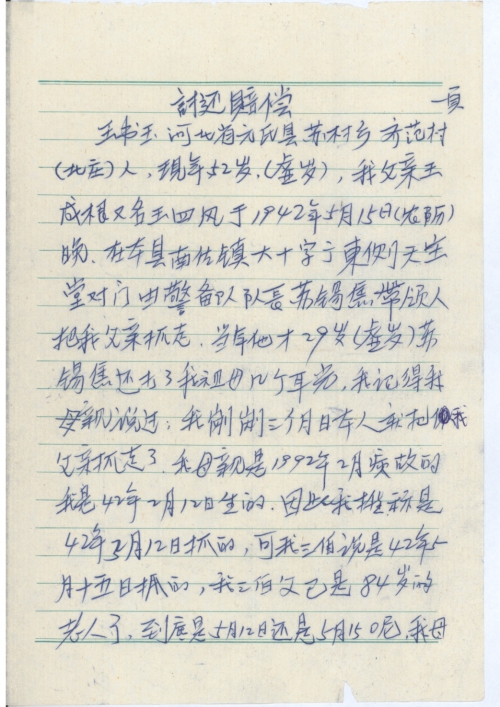 討还賠偿 一頁
王书玉河北省元氏县苏村乡齐范村
(北庄)人,現年52岁,(虚岁),我父亲王
成根又名王四风于1942年5月15日(农历)
晚.在本县南佐镇大十字宁東侧天主
堂对门由警备队队長苏锡焦带领人
把我父亲抓走.当年他才29岁(虚岁)苏
锡焦还打了我祖母几个耳光,我记得我
母亲说过:我刚刚三个月日本人就把我
父亲抓走了.我母亲是1992年2月病故的
我是42年2月12日生的.因此我推称是
42年5月12日抓的,可我三伯说是42年5
月十五日抓的,我三伯父已是84岁的
老人了.到底是5月12日还是5月15日呢,我母